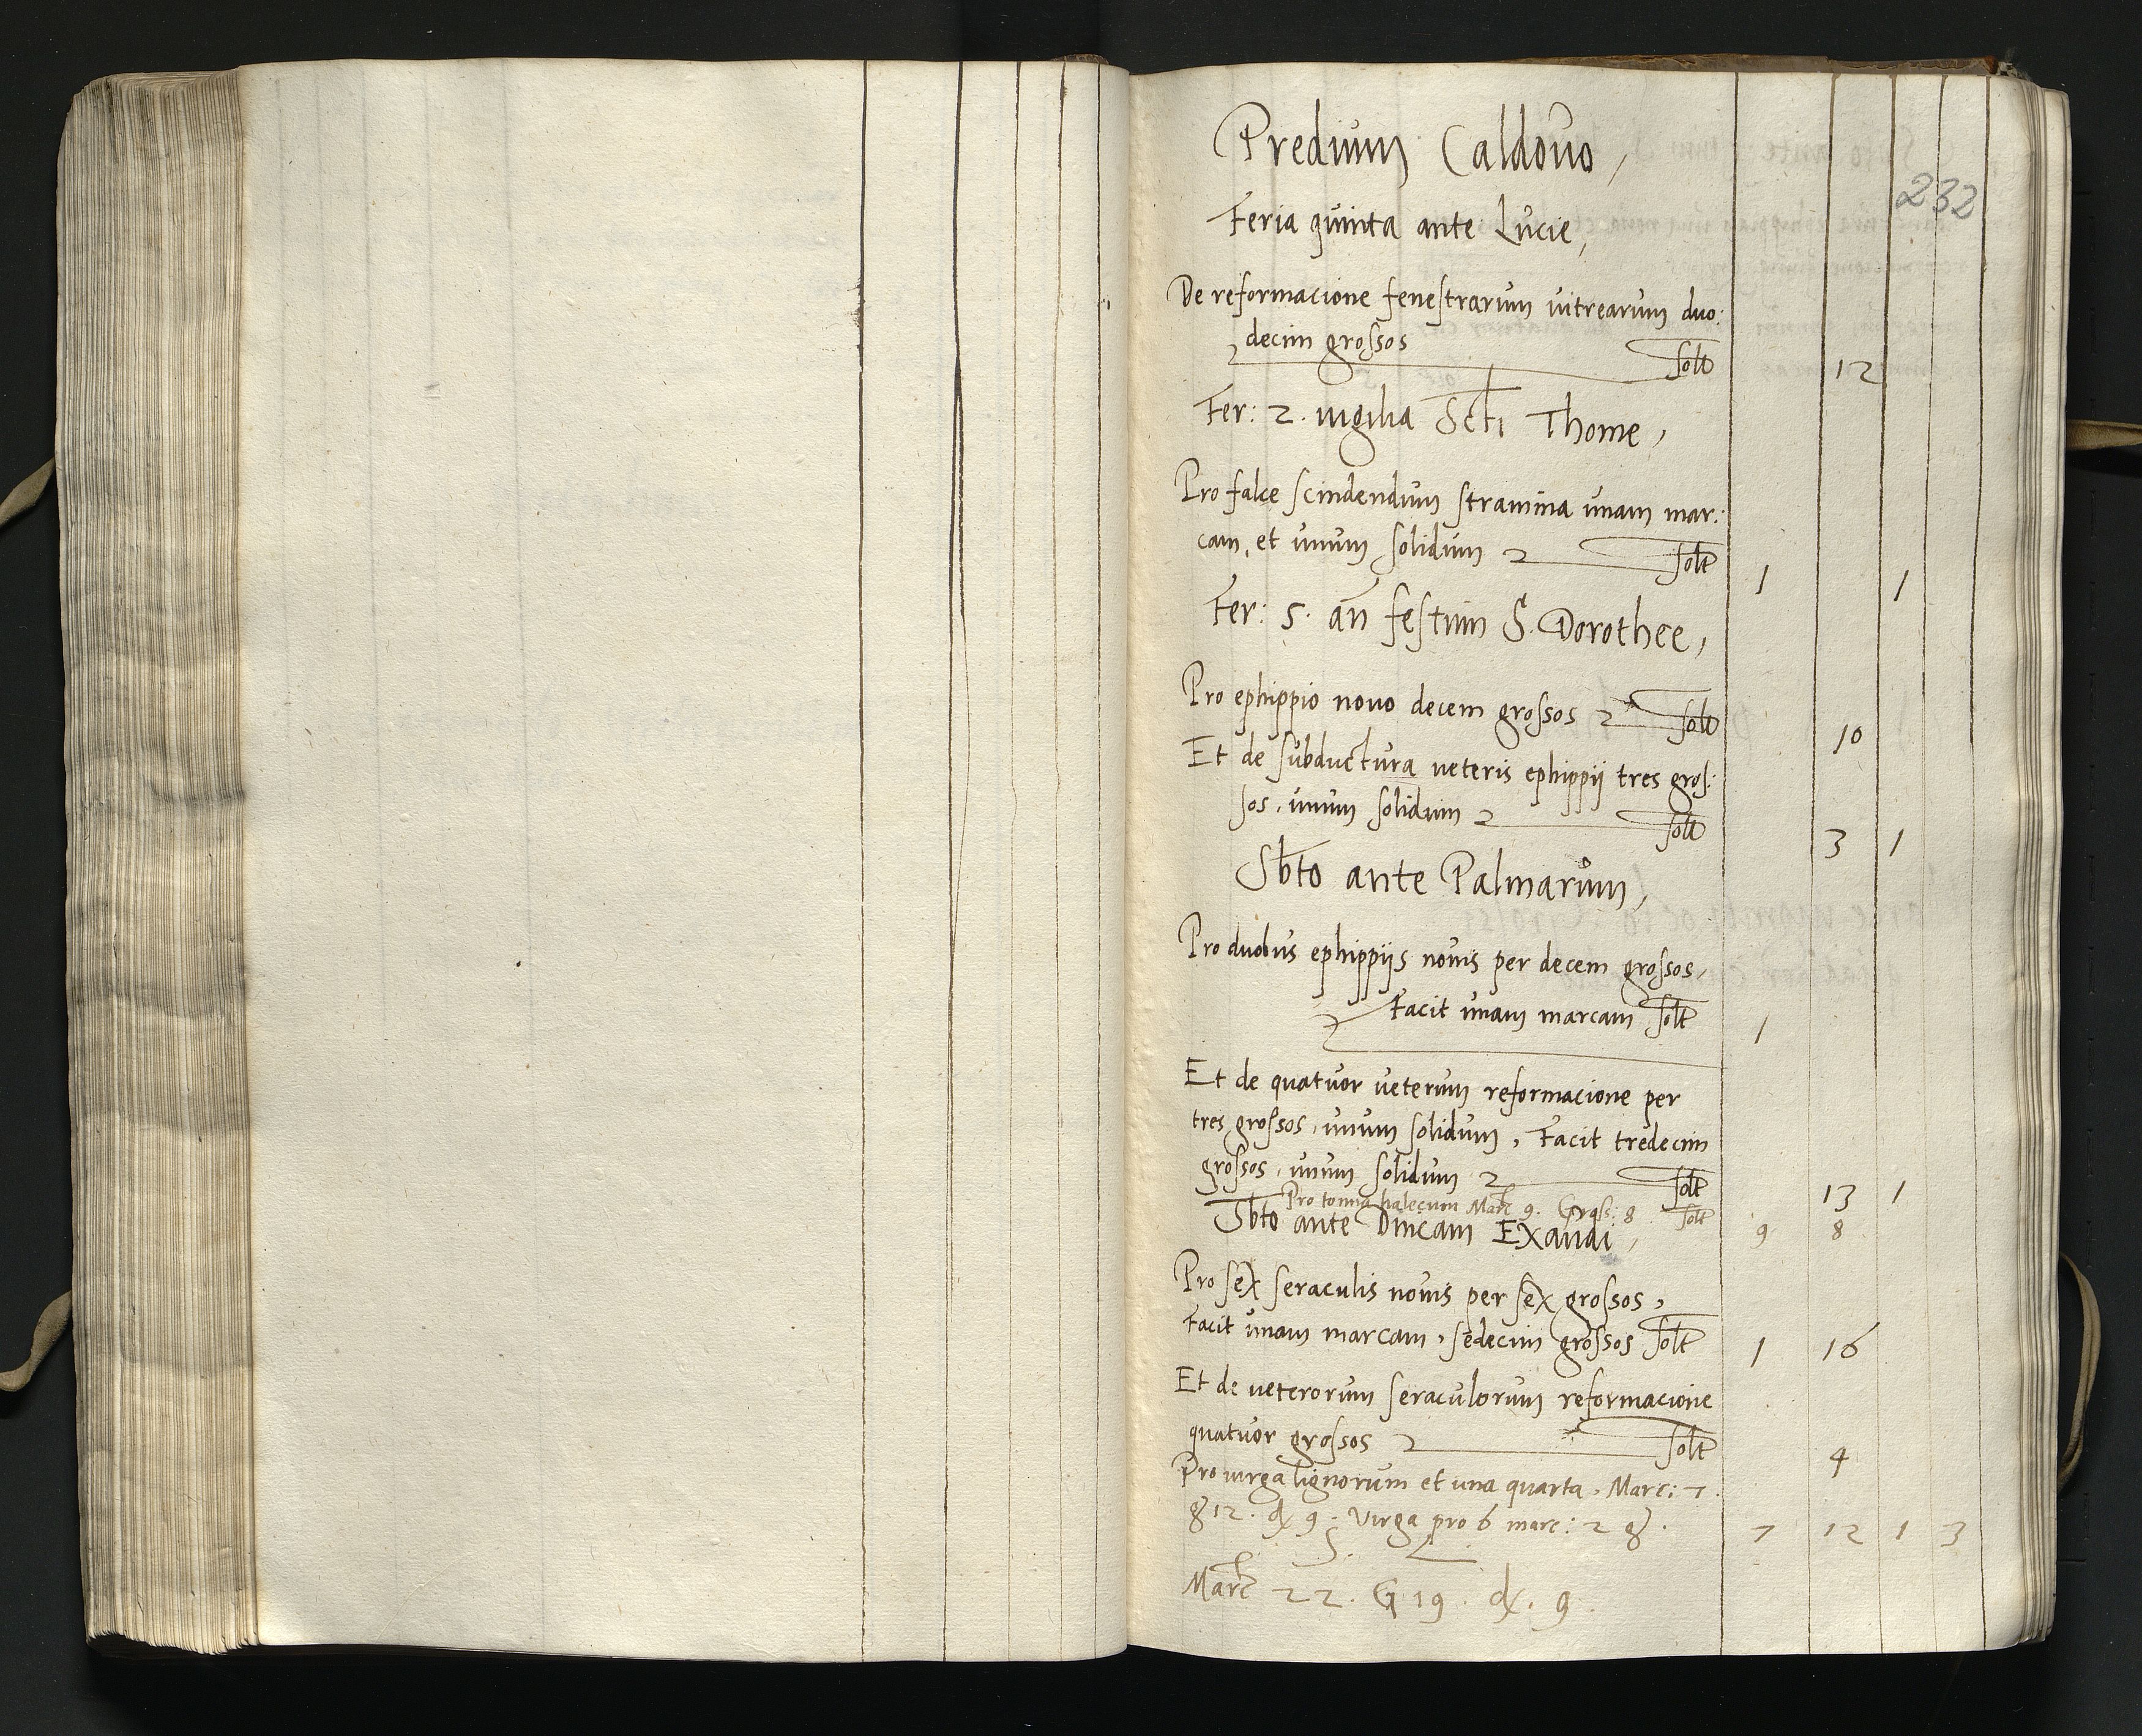 Predium Caldovo,
232
Feria quinta ante Lucie,
De reformacione fenestrarum vitrearum duo:
decim grossos solt 12
Fer: 2. vigilia Scti Thome,
Pro falce scindendum stramina unam mar:
cam, et unum solidum solt 1 1
Fer: 5. an festum S. Dorothee,
Pro ephippio novo decem grossos solt 10
Et de subductura veteris ephippij tres gros:
sos, unum solidum solt 3 1
Sbto ante Palmarum,
Pro duobus ephippijs novis per decem grossos,
Facit unam marcam solt 1
Et de quatuor veterum reformacione per
tres grossos, unum solidum, Facit tredecim
grossos, unum solidum solt 13 1
Pro tonna halecum Marc 9. Gross: 8 solt 9 8
Sbto ante Dnicam Exaudi,
Pro sex seraculis novis per sex grossos,
Facit unam marcam, sedecim grossos solt 1 16
Et de veterorum seraculorum reformacione
quatuor grossos solt 4
Pro virga lignorum et una quarta, Marc: 7.
g 12. d 9. Virga pro 6 marc: 2 g. 7 12 1 3
S.
Marc 22. G 19. d. 9.